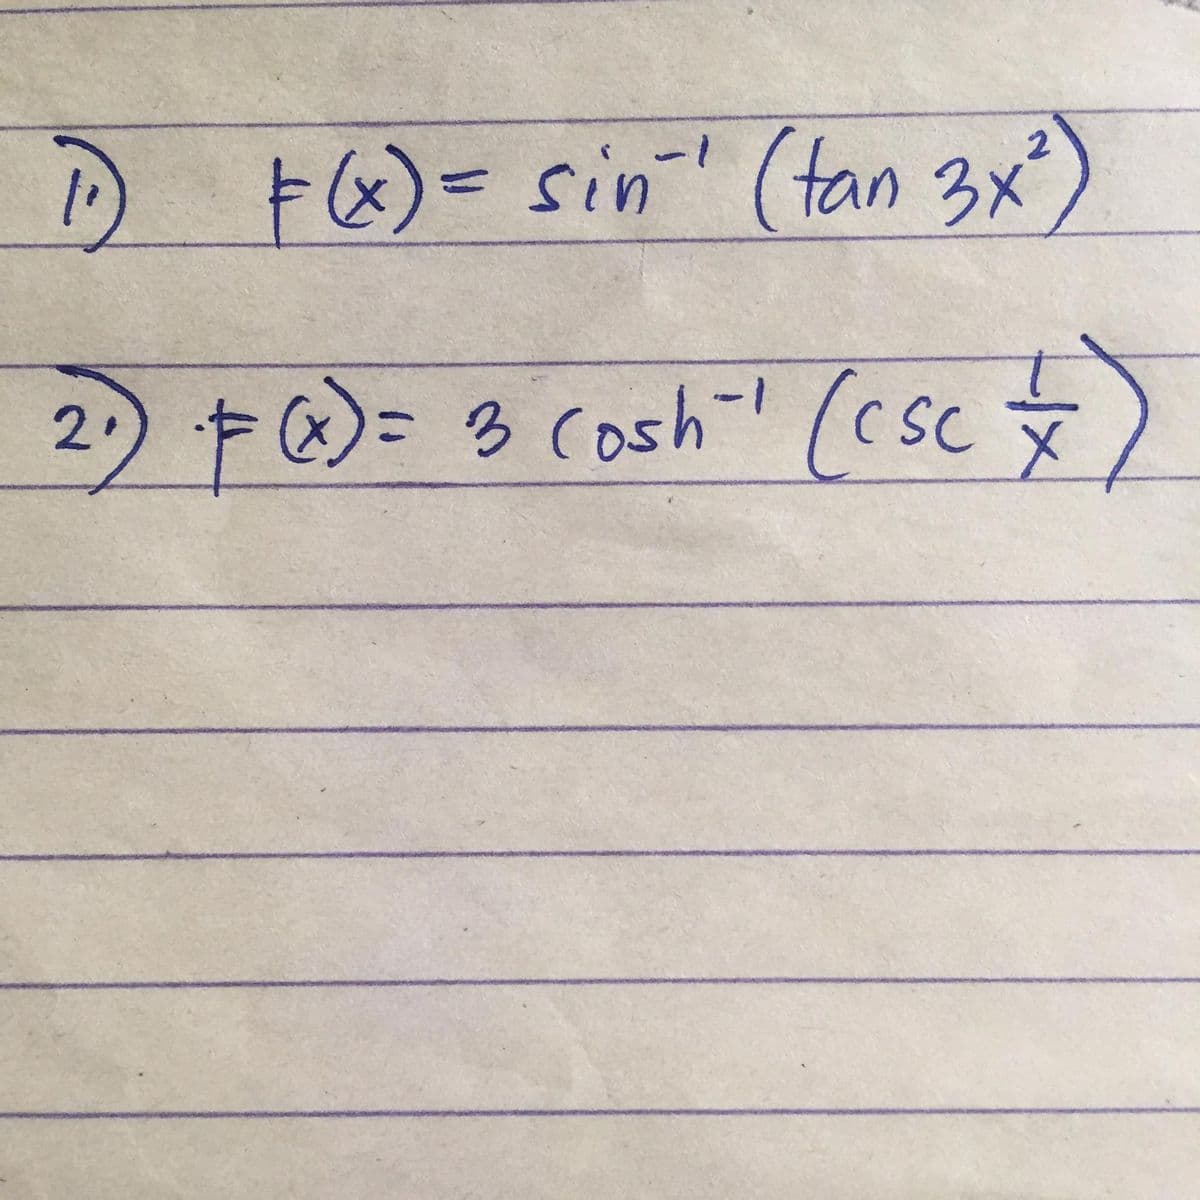 1.) F(x) = sin⁻¹ (tan 3x²)
2.) F(x) = 3 cosh⁻¹ (csc 1/x)